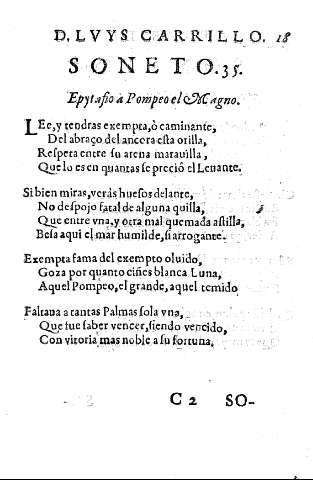 D. LVYS CARRILLO. 18
SONETO. 35.
Epytafio a Pompeo el Magno.
LEe, y tendras exempta, ò caminante,
Del abraço del ancora esta orilla,
Respeta entre su arena marauilla,
Que lo es en quantas se preciô el Leuante.
Si bien miras, verás huesos delante,
No despojo fatal de alguna quilla,
Que entre vna, y otra mal quemada astilla,
Besa aqui el mar humilde, si arrogante.
Exempta fama del exempto oluido,
Goza por quanto ciñes blanca Luna,
Aquel Pompeo, el grande, aquel temido
Faltaua a tantas Palmas sola vna,
Que fue saber vencer, siendo vencido,
Con vitoria mas noble a su fortuna.
C 2 SO-